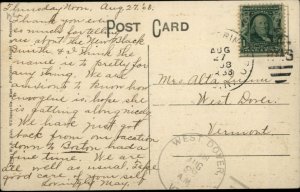 Thursday Noon, Aug. 27, '08.
Thank you ever
so much for telling
me about the New Black
think the
name is to pretty for
any thing. We are
anxious to know how
is. hope she
is getting along nicely
We have just got
back from our vacation
down to Boston had a
fine time. We are
all well as usual. Take
good care of your self
Lovingly May.
POST CARD
AUG
27
Mrs. Alta
West Dover,
Vermont.
WEST DOVER,
AUG
A.M.